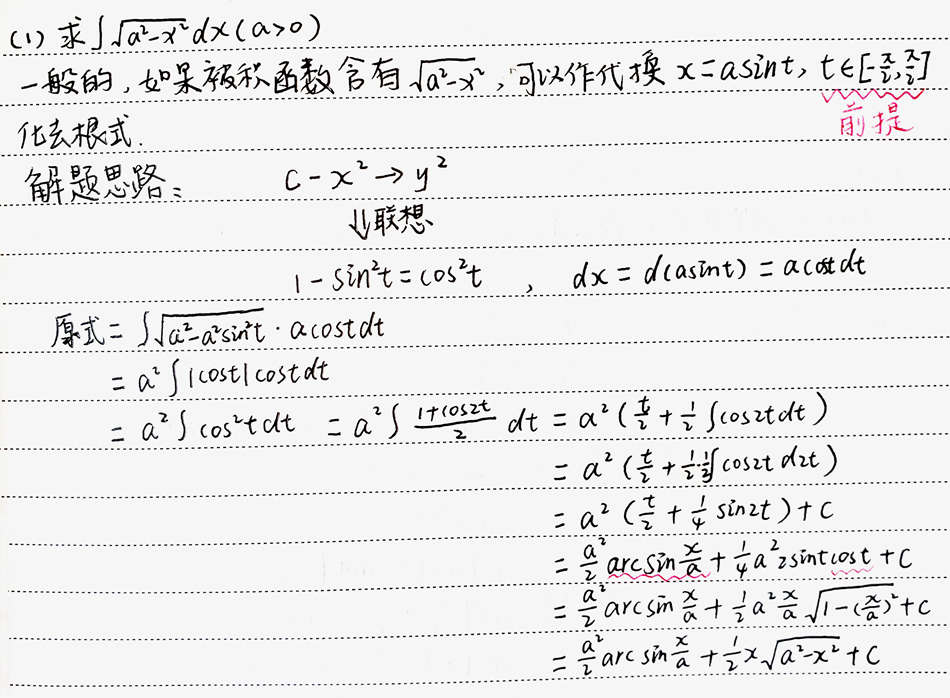 (1) 求∫√(a²-x²) dx (a>0)
一般的, 如果被积函数含有√(a²-x²), 可以作代换 x=asint, t∈[-π/2, π/2]
前提
化去根式.
解题思路: C-x²→y²
⇓联想
1-sin²t=cos²t , dx=d(asint)=acostdt
原式=∫√(a²-a²sin²t)·acostdt
=a²∫|cost|costdt
=a²∫cos²tdt =a²∫(1+cos2t)/2 dt =a²(t/2+1/2∫cos2tdt)
=a²(t/2+1/2·1/2∫cos2t d2t)
=a²(t/2+1/4 sin2t)+C
=a²/2 arcsin x/a+1/4 a² 2sintcost+C
=a²/2 arcsin x/a+1/2 a² x/a √(1-(x/a)²)+C
=a²/2 arcsin x/a+1/2 x√(a²-x²)+C